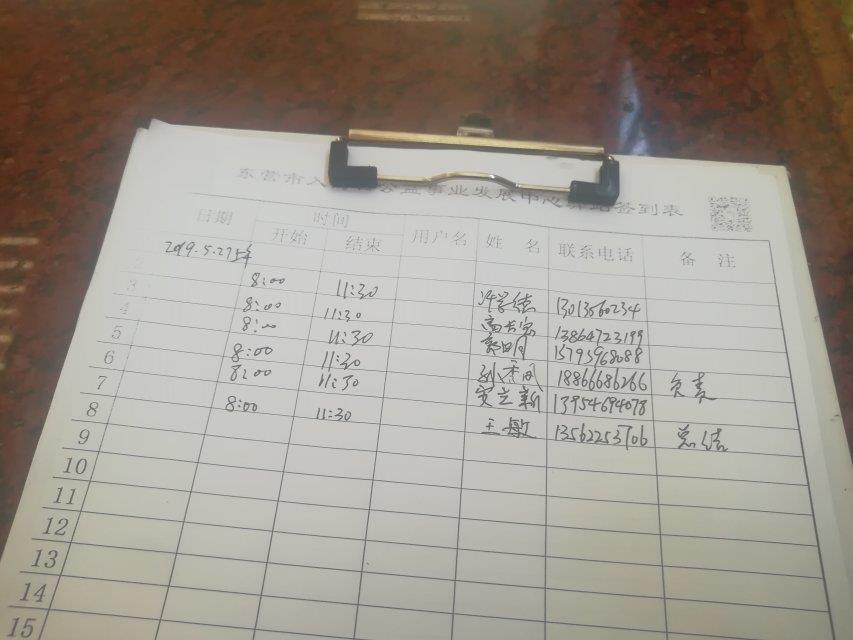 东营市人 公益事业发展中心 签到表
日期 时间 用户名 姓 名 联系电话 备 注
开始 结束
2019.5.27
3 8:00 11:30 13013560234
4 8:00 11:30 13864723199
5 8:00 11:30 15795968088
6 8:00 11:30 18866686266 负责
7 8:00 11:30 安立新 13954694078
8 8:00 11:30 王敏 13562253706 总结
9
10
11
12
13
14
15